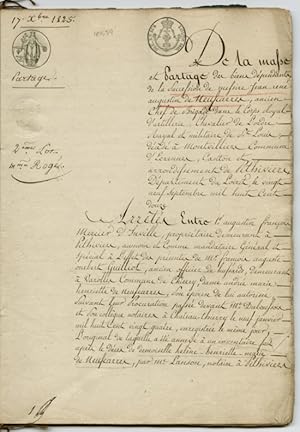 17 Xbre 1825.
Partage
De la masse
et Partage des biens dépendants
de la Succession de
augustin de Neufcarres, ancien
Chef de Brigade dans le Corps Royal
d'artillerie, Chevalier de l'ordre
Royal et militaire de St Louis
décédé à Montvilliers Commune
d'Ecrennes, Canton et
arrondissement de Pithiviers
Département du Loiret le vingt
neuf septembre mil huit Cent
douze
Arrêtés Entre 1° augustin françois
Mercier propriétaire demeurant à
Pithiviers, au nom et Comme mandataire Général et
Spécial à l'effet des présentes de Mr françois auguste
Guilliot, ancien officier de demeurant
à Parolles Commune de Chiery, dame
henriette de Neufcarres, son épouse de lui autorisée
Suivant leur procuration passée devant Me
et son collègue notaires à Château-thierry le neuf janvier
mil huit Cent vingt quatre, enregistrée le même jour,
L'original de laquelle a été annexé à un inventaire fait
après le décès de demoiselle henriette
de Neufcarres, par Me notaire à Pithiviers